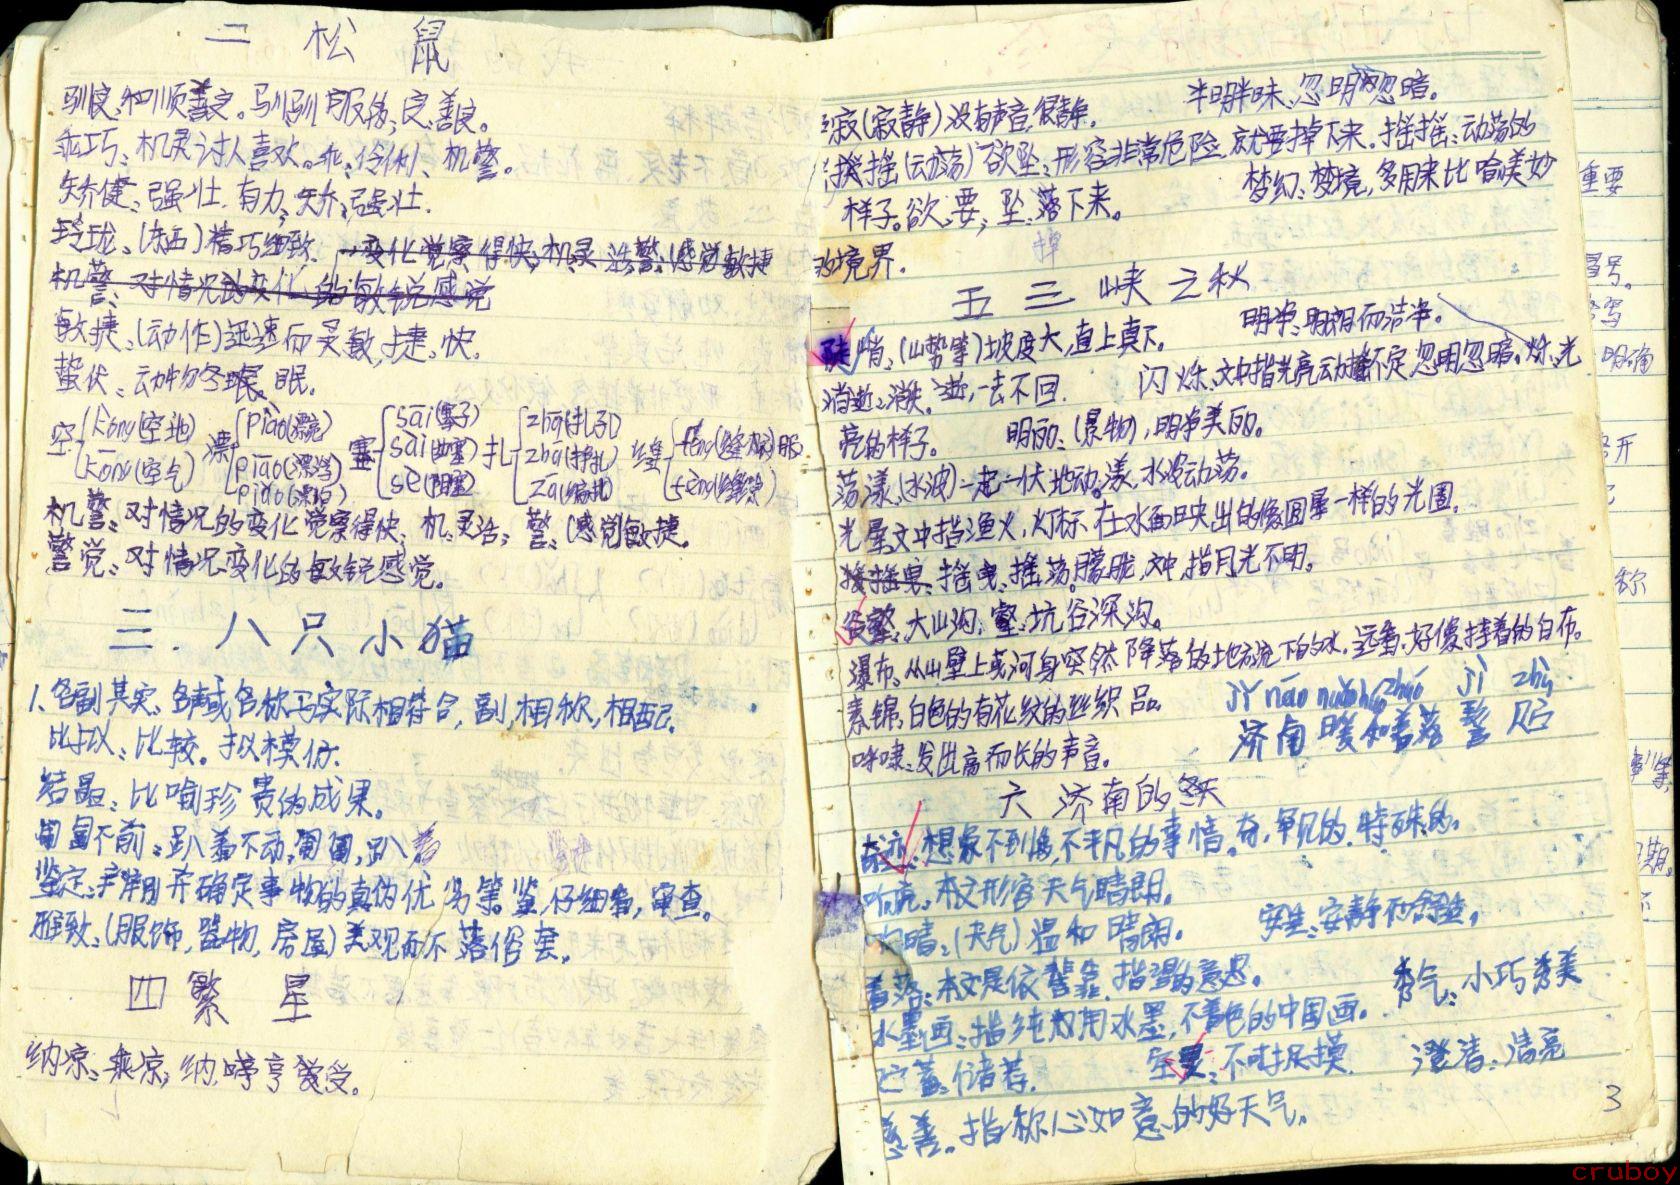 二 松 鼠
驯良:和顺善良。驯:驯服的,良:善良。
乖巧:机灵讨人喜欢。乖:伶俐、机警。
矫健:强壮有力,矫:强壮.
玲珑:(东西)精巧细致.
敏捷:(动作)迅速而灵敏,捷:快.
蛰伏:动物冬眠.
空 kòng(空地) kōng(空气) 漂 piào(漂亮) piāo(漂浮) piāo(漂泊) 塞 sāi(塞子) sài(边塞) sè(阻塞) 扎 zhā(扎引) zhá(挣扎) zā(编扎) 缝 féng(缝衣服) fèng(缝隙)
机警:对情况的变化觉察得快.机:灵活;警:(感觉)敏捷.
警觉:对情况变化的敏锐感觉.
三. 八 只 小 猫
1.名副其实:名声或名称与实际相符合,副,相称,相配.
比拟:比较。拟:模仿.
结晶:比喻珍贵的成果。
匍匐不前:趴着不动,匍匐,趴着
鉴定:辨别并确定事物的真伪优劣等。鉴,仔细看,审查。
雅致:(服饰,器物,房屋)美观而不落俗套。
四 繁 星
纳凉:乘凉;纳:享受。
半明半昧:忽明忽暗。
寂(寂静)没有声音,很静.
摇摇(动荡)欲坠:形容非常危险,就要掉下来.摇摇:动荡的
样子。欲:要;坠:落下来。
掉
梦幻:梦境,多用来比喻美妙
的境界.
五 三 峡 之 秋
陡峭:(山势等)坡度大,直上直下.
明净:明朗而洁净。
消逝:消失。逝:一去不回.
闪烁:文中指光亮动摇不定忽明忽暗。烁:光
亮的样子.
明丽:(景物),明净美丽。
荡漾:(水波)一起一伏地动。漾:水波动荡。
光晕:文中指渔火,灯标,在水面映出的像圆晕一样的光圈.
摇曳:摇荡.朦胧,文中指月光不明.
谷壑:大山沟;壑:坑谷深沟。
瀑布:从山壁上或河身突然降落的地方流下的水,远看好像挂着的白布.
素锦:白色的有花纹的丝织品.
呼啸:发出高而长的声音。
jǐ nán nuǎn huo zhuó jì zhù
济南 暖和 着落 髻 贮
六 济南的冬天
奇迹:想象不到的,不平凡的事情.奇,罕见的,特殊的.
响亮:本文形容天气晴朗.
响晴:(天气)温和晴朗.
安生:安静而舒适.
着落:本文是依靠,指望的意思。
秀气:小巧秀美
水墨画:指纯用水墨,不着色的中国画.
贮蓄:储存.
空灵:不可捉摸.
澄清:清亮
慈善:指称心如意的好天气.
3
cruboy